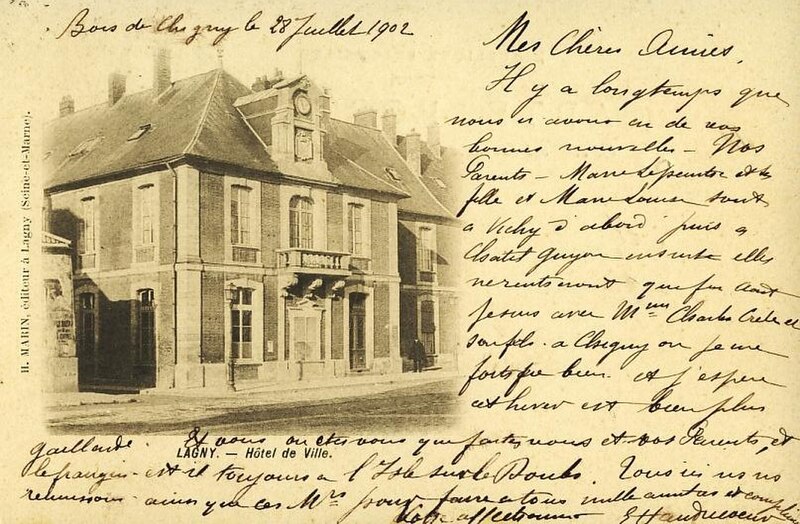 Bois de Chigny le 28 Juillet 1902
Mes Chères Amies,
Il y a longtemps que
nous n avons eu de vos
bonnes nouvelles - Nos
Parents - Marie Lepeintre et sa
fille et Marie Louise sont
a Vichy d'abord puis a
Chatel Guyon ensuite elles
ne rentreront que fin aout
Je suis avec Mme Charles
son fils a Chigny ou je me
fortifie bien. et j'espere
cet hiver est bien plus
gaillarde. Et vous ou etes vous que faites vous et vos Parents, et
est il toujours a l'Isle sur le Doubs. Tous ici nous
reunissons ainsi que ces Mrs pour faire a tous mille amities et
Votre affectionnee
LAGNY. — Hôtel de Ville.
H. MARIN, éditeur à Lagny (Seine-et-Marne).